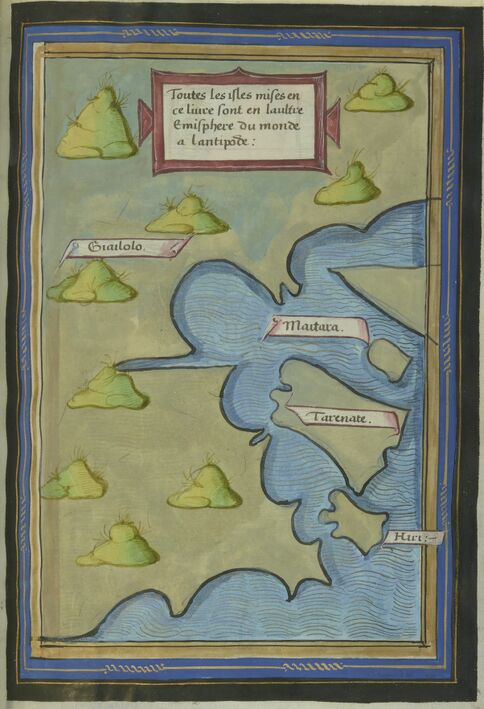 Toutes les isles mises en
ce liure sont en laultre
Emisphere du monde
a lantipode:
Giailolo.
Maitara.
Tarenate.
Hiri:~